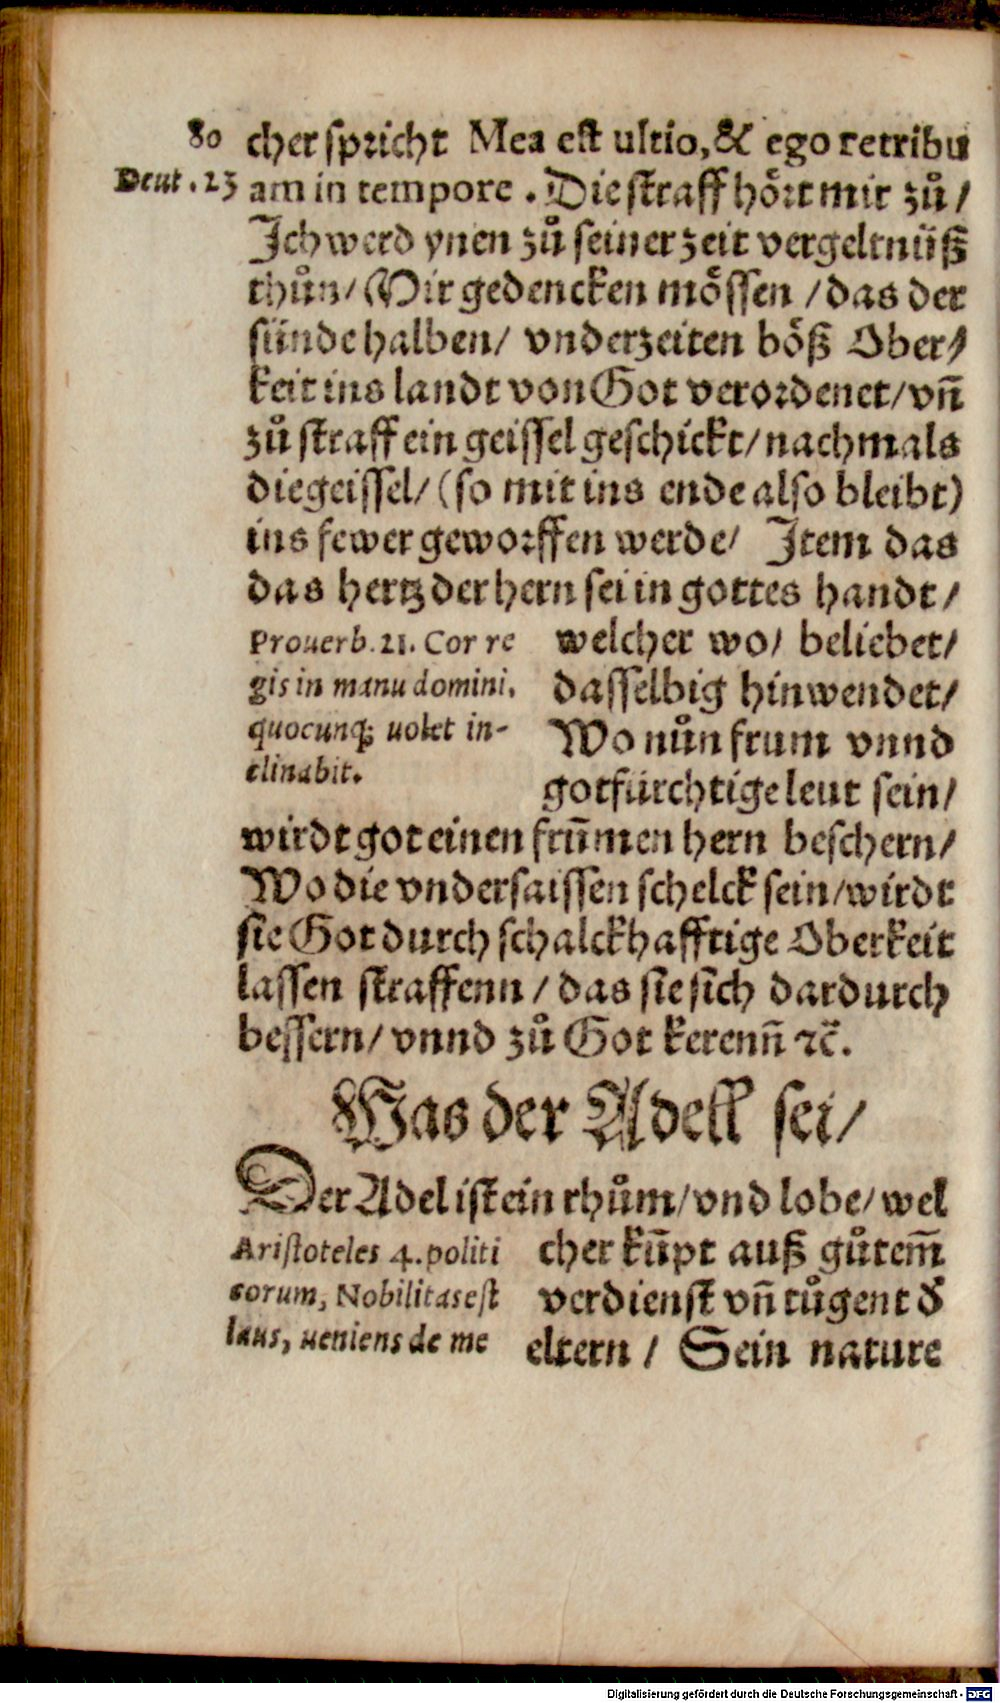 80 cher spricht Mea est ultio, & ego retribu
Deut. 23 am in tempore. Die straff hört mir zů/
Ich werd ynen zů seiner zeit vergeltnüß
thůn/ Wir gedencken mössen / das der
sünde halben/ vnderzeiten böß Ober/
keit ins landt von Got verordenet/ vñ
zů straff ein geissel geschickt/ nachmals
die geissel/ (so mit ins ende also bleibt)
ins fewer geworffen werde/ Item das
das hertz der hern sei in gottes handt/
welcher wo/ beliebet/
dasselbig hinwendet/
Wo nůn frum vnnd
gotfürchtige leut sein/
Prouerb. 21. Cor re
gis in manu domini,
quocunq; uolet in-
clinabit.
wirdt got einen frũmen hern beschern/
Wo die vndersaissen schelck sein/ wirdt
sie Got durch schalckhafftige Oberkeit
lassen straffenn / das sie sich dardurch
bessern/ vnnd zů Got kerenñ ꝛc̃.
Was der Adell sei/
Der Adel ist ein rhům/ vnd lobe/ wel
cher kũpt auß gůtem̃
verdienst vñ tůgent d̕
eltern / Sein nature
Aristoteles 4. politi
corum, Nobilitas est
laus, ueniens de me
Digitalisierung gefördert durch die Deutsche Forschungsgemeinschaft - DFG